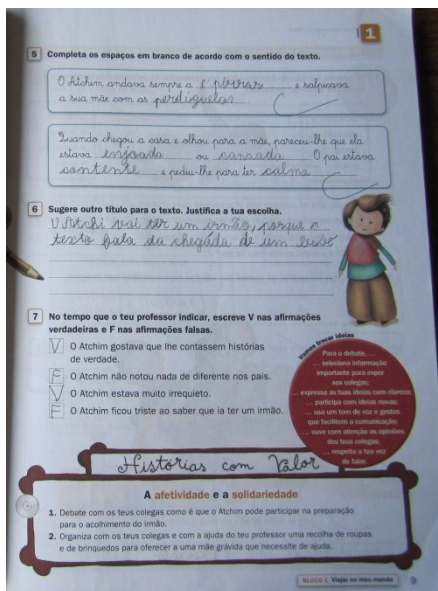 1
5 Completa os espaços em branco de acordo com o sentido do texto.
O Atchim andava sempre a espirrar e salpicava
a sua mãe com as perdiguelas
Quando chegou a casa e olhou para a mãe, pareceu-lhe que ela
estava enjoada ou cansada. O pai estava
contente e pediu-lhe para ter calma
6 Sugere outro título para o texto. Justifica a tua escolha.
O Atchi vai ter um irmão, porque o
texto fala da chegáda de um bebé
7 No tempo que o teu professor indicar, escreve V nas afirmações
verdadeiras e F nas afirmações falsas.
V O Atchim gostava que lhe contassem histórias
de verdade.
F O Atchim não notou nada de diferente nos pais.
V O Atchim estava muito irrequieto.
F O Atchim ficou triste ao saber que ia ter um irmão.
Vamos trocar ideias
Para o debate, ...
... seleciona informação
importante para expor
aos colegas;
... expressa as tuas ideias com clareza;
... participa com ideias novas;
... usa um tom de voz e gestos
que facilitem a comunicação;
... ouve com atenção as opiniões
dos teus colegas;
... respeita a tua vez
de falar.
Histórias com Valor
A afetividade e a solidariedade
1. Debate com os teus colegas como é que o Atchim pode participar na preparação
para o acolhimento do irmão.
2. Organiza com os teus colegas e com a ajuda do teu professor uma recolha de roupas
e de brinquedos para oferecer a uma mãe grávida que necessite de ajuda.
BLOCO 1 Viajar no meu mundo 9